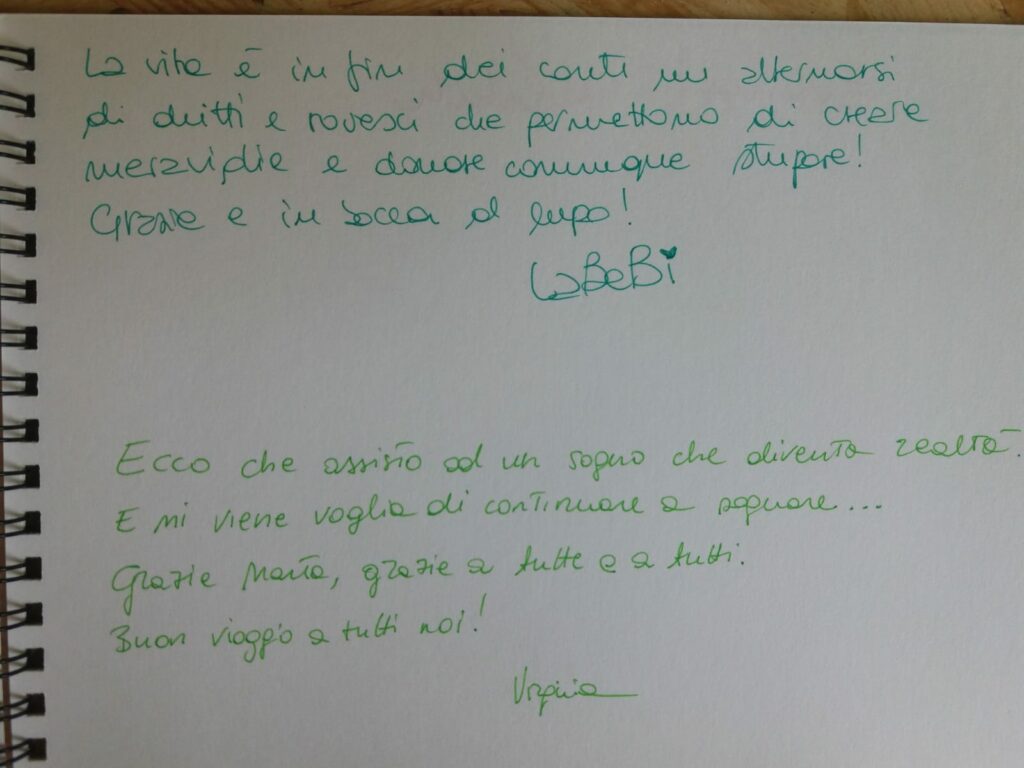 La vita è in fin dei conti un alternarsi
di dritti e rovesci che permettono di creare
meraviglie e donare comunque stupore!
Grazie e in bocca al lupo!
LaBeBi
Ecco che assisto ad un sogno che diventa realtà.
E mi viene voglia di continuare a sognare...
Grazie Marta, grazie a tutte e a tutti.
Buon viaggio a tutti noi!
Virginia